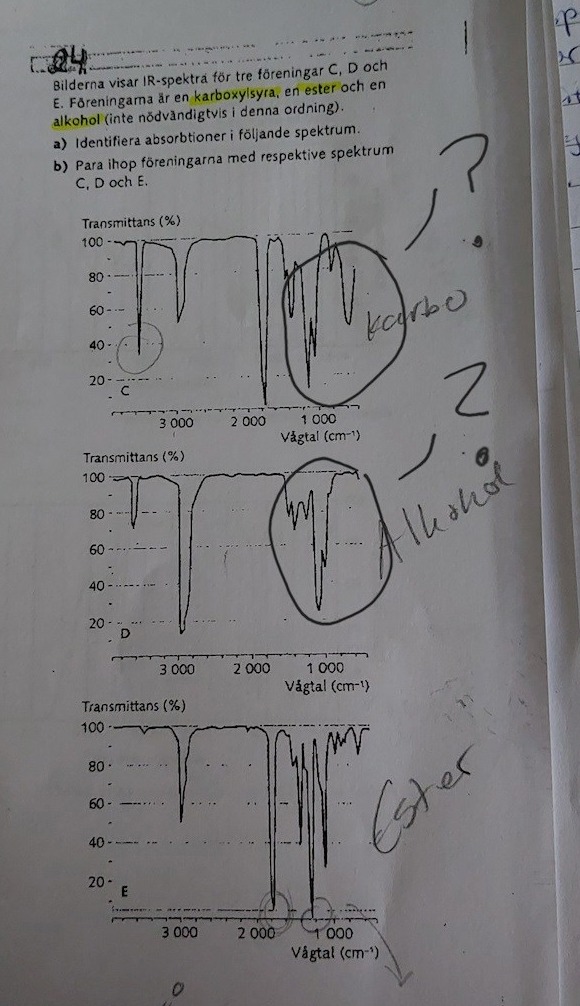 24
Bilderna visar IR-spektra för tre föreningar C, D och
E. Föreningarna är en karboxylsyra, en ester och en
alkohol (inte nödvändigtvis i denna ordning).
a) Identifiera absorbtioner i följande spektrum.
b) Para ihop föreningarna med respektive spektrum
C, D och E.
?
Transmittans (%)
100
80
60
40
20
C
karbo
3 000 2 000 1 000
Vågtal (cm⁻¹)
?
Transmittans (%)
100
80
60
40
20
D
Alkohol
3 000 2 000 1 000
Vågtal (cm⁻¹)
Transmittans (%)
100
80
60
40
20
E
Ester
3 000 2 000 1 000
Vågtal (cm⁻¹)